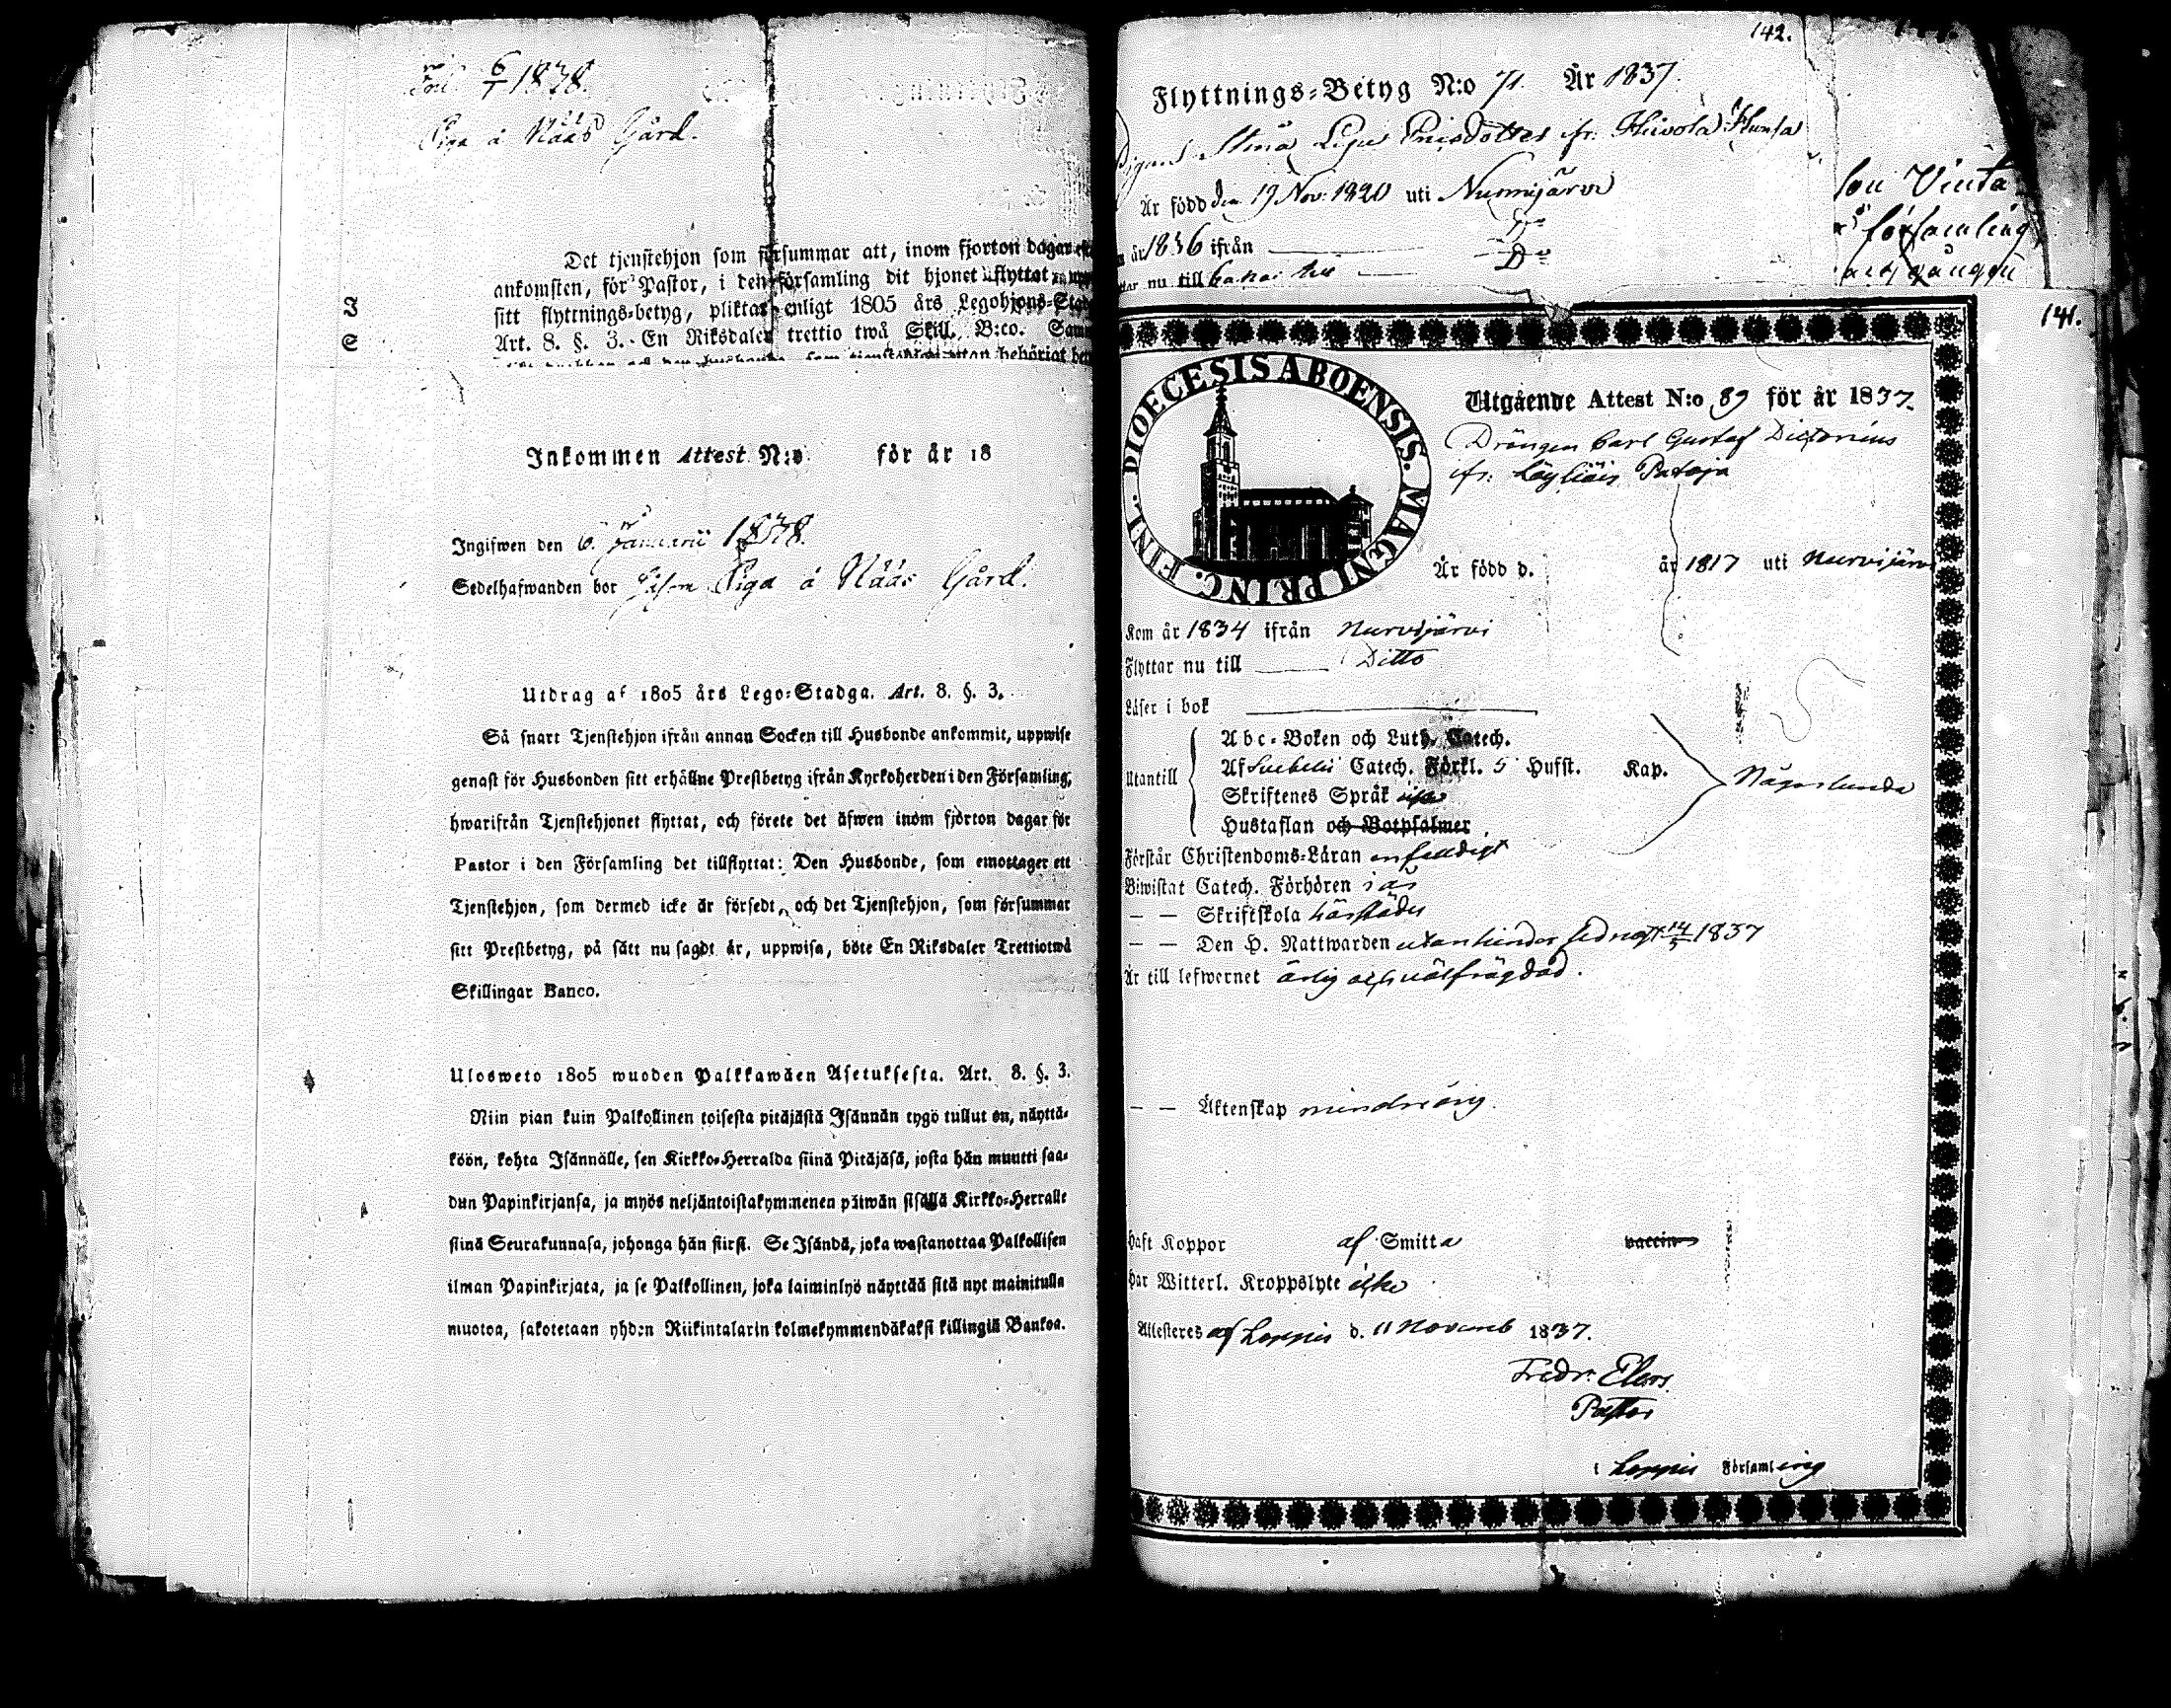 6/1 1838.
Piga å Nääs Gård.
Det tjenstehjon som försummar att, inom fjorton dagar
ankomsten, för Pastor, i den församling dit hjonet flyttat
sitt flyttnings-betyg, pliktar enligt 1805 års Legohjons-
Art. 8. §. 3. En Riksdaler trettio twå Skill. B:co.
Inkommen Attest N:o för år 18
Ingifwen den 6. Januarii 1838.
Sedelhafwanden bor såsom Piga å Nääs Gård.
Utdrag af 1805 års Lego-Stadga. Art. 8. §. 3.
Så snart Tjenstehjon ifrån annan Socken till Husbonde ankommit, uppwise
genast för Husbonden sitt erhållne Prestbetyg ifrån Kyrkoherden i den Församling,
hwarifrån Tjenstehjonet flyttat, och förete det äfwen inom fjorton dagar för
Pastor i den Församling det tillflyttat: Den Husbonde, som emottager ett
Tjenstehjon, som dermed icke är försedt, och det Tjenstehjon, som försummar
sitt Prestbetyg, på sätt nu sagdt är, uppwisa, böte En Riksdaler Trettiotwå
Skillingar Banco.
Ulosweto 1805 wuoden Palkkawäen Asetuksesta. Art. 8. §. 3.
Niin pian kuin Palkollinen toisesta pitäjästä Isännän tygö tullut on, näyttä-
köön, kohta Isännälle, sen Kirkko-Herralda siinä Pitäjäsä, josta hän muutti saa-
dun Papinkirjansa, ja myös neljäntoistakymmenen päiwän sisällä Kirkko-Herralle
siinä Seurakunnasa, johonga hän siirsi. Se Isändä, joka wastanottaa Palkollisen
ilman Papinkirjata, ja se Palkollinen, joka laiminlyö näyttää sitä nyt mainitulla
muotoa, sakotetaan yhden Riikintalarin kolmekymmendäkaksi killingiä Bankoa.
142.
Flyttnings-Betyg N:o 71. År 1837.
Pigan Stina Lisa
Är född den 19 Nov. 1820 uti Nurmijärvi
år 1836 ifrån D:o
nu till
församling
141.
DIOECESIS ABOENSIS. MAGNI PRINC. FINL.
Utgående Attest N:o 89 för år 1837.
Drängen Carl Gustaf
ifr. Löyliäis Pataja
Är född d. år 1817 uti Nurmijärvi
Kom år 1834 ifrån Nurmijärvi
Flyttar nu till Ditto
Läser i bok
Abc-Boken och Luth. Catech.
Utantill Af Svebelii Catech. Förkl. 5 Hufst. Kap. Någorlunda
Skriftenes Språk icke
Hustaflan och Botpsalmer
Förstår Christendoms-Läran enfaldigt
Biwistat Catech. Förhören
— — Skriftskola härstädes
— — Den H. Nattwarden utan hinder sednast 14/5 1837
Är till lefwernet ärlig och välfrägdad.
— — Äktenskap minderårig.
Haft Koppor af Smitta vaccin
Har Witterl. Kroppslyte icke
Attesteres af Loppis d. 11 Novemb 1837.
Fredr.
Pastor
i Loppis Församling